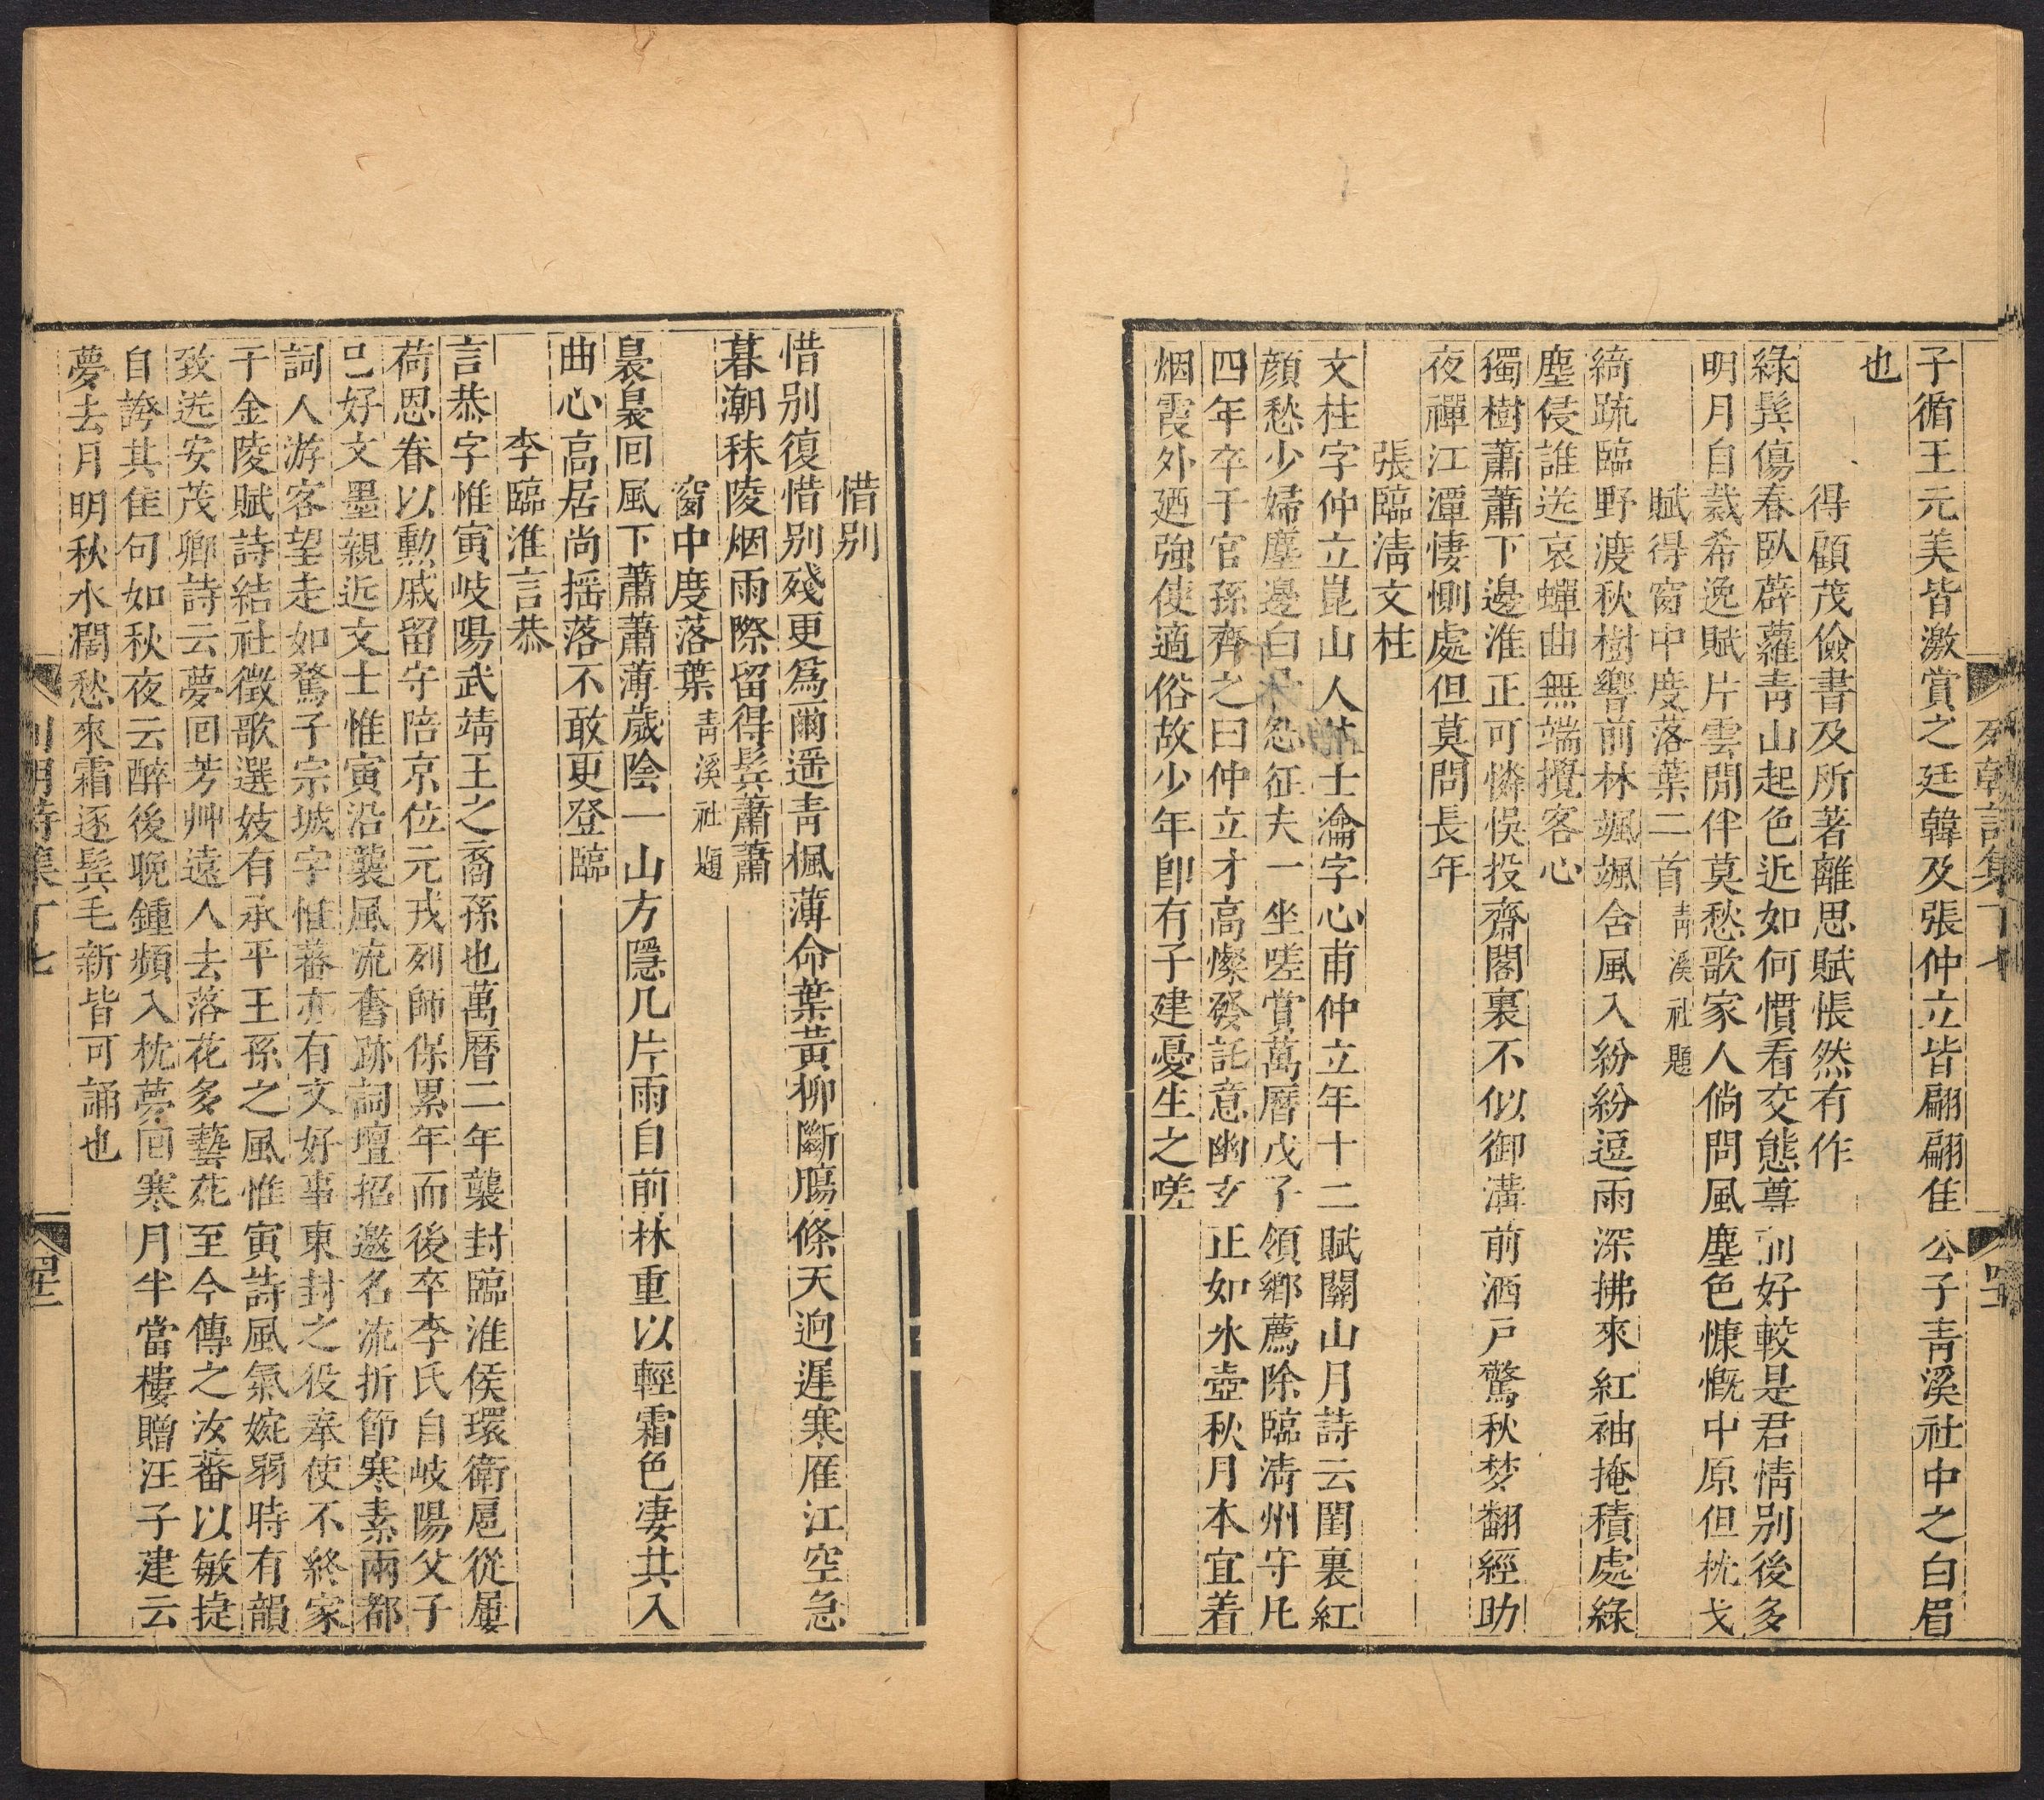 子循王元美皆激賞之廷韓及張仲立皆翩翩隹公子靑溪社中之白眉
也
得顧茂儉書及所著離思賦悵然有作
綠髩傷春臥薜蘿靑山起色近如何慣看交態尊前好較是君情別後多
明月自裁希逸賦片雲閒伴莫愁歌家人倘問風塵色慷慨中原但枕戈
賦得窗中度落葉二首靑溪社題
綺疏臨野渡秋樹響前林颯颯含風入紛紛逗雨深拂來紅袖掩積處綠
塵侵誰送哀蟬曲無端攪客心
獨樹蕭蕭下邊淮正可憐悞投齋閣裏不似御溝前酒戸驚秋梦翻經助
夜禪江潭悽惻處但莫問長年
張臨淸文柱
文柱字仲立崑山人 士瀹字心甫仲立年十二賦關山月詩云閨裏紅
顔愁少婦塵邊白 怨征夫一坐嗟賞萬曆戊子領鄉薦除臨淸州守凡
四年卒于官孫齊之曰仲立才高燦發託意幽玄正如氷壺秋月本宜着
烟霞外廼強使適俗故少年卽有子建憂生之嗟
列朝詩集丁七
惜别
惜别復惜别殘更爲爾遥靑楓薄命葉黃柳斷膓條天逈遲寒雁江空急
暮潮秣陵烟雨際留得髩蕭蕭
窗中度落葉靑溪社題
裊裊回風下蕭蕭薄歲陰一山方隱几片雨自前林重以輕霜色凄共入
曲心高居尚摇落不敢更登臨
李臨淮言恭
言恭字惟寅岐陽武靖王之裔孫也萬曆二年襲封臨淮侯環衛扈從屢
荷恩眷以勲戚留守陪京位元戎列師保累年而後卒李氏自岐陽父子
已好文墨親近文士惟寅沿襲風流舊跡詞壇招邀名流折節寒素兩都
詞人游客望走如騖子宗城字惟蕃亦有文好事東封之役奉使不終家
于金陵賦詩結社徵歌選妓有承平王孫之風惟寅詩風氣婉弱時有韻
致送安茂卿詩云夢回芳艸遠人去落花多藝苑至今傳之汝蕃以敏捷
自誇其隹句如秋夜云醉後晩鍾頻入枕夢回寒月半當樓贈汪子建云
夢去月明秋水濶愁來霜逐髩毛新皆可誦也
列朝詩集丁七